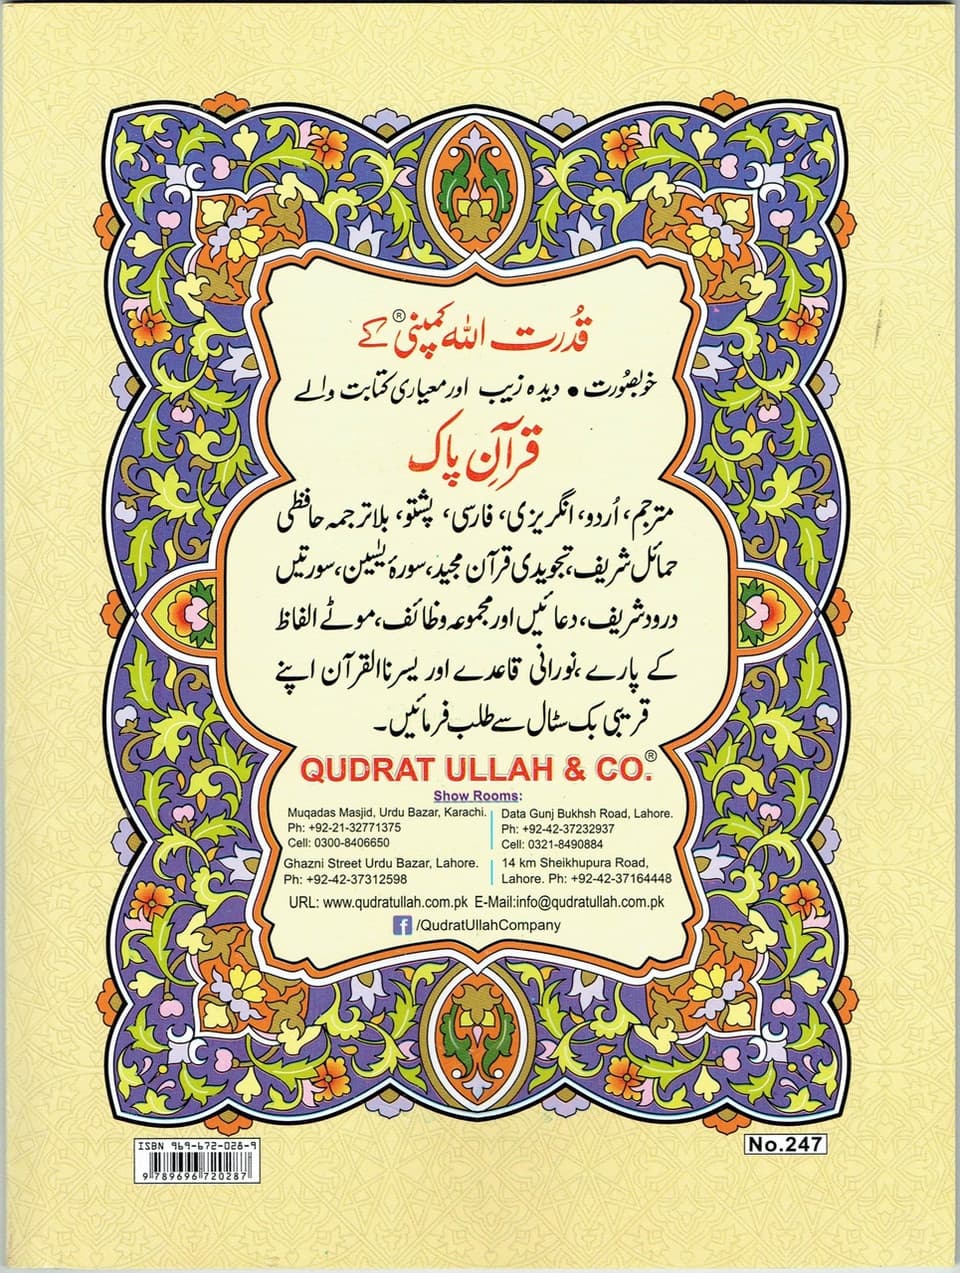 قُدرت اللہ کمپنی® کے
خوبصُورت • دیدہ زیب اور معیاری کتابت والے
قرآنِ پاک
مترجم، اُردو، انگریزی، فارسی، پشتو، بلا ترجمہ حافظی
حمائل شریف، تجویدی قرآن مجید، سورۂ یٰسین، سورتیں
درود شریف، دعائیں اور مجموعہ وظائف، موٹے الفاظ
کے پارے، نورانی قاعدے اور یسرنا القرآن اپنے
قریبی بک سٹال سے طلب فرمائیں۔
QUDRAT ULLAH & CO.®
Show Rooms:
Muqadas Masjid, Urdu Bazar, Karachi.
Ph: +92-21-32771375
Cell: 0300-8406650
Data Gunj Bukhsh Road, Lahore.
Ph: +92-42-37232937
Cell: 0321-8490884
Ghazni Street Urdu Bazar, Lahore.
Ph: +92-42-37312598
14 km Sheikhupura Road,
Lahore. Ph: +92-42-37164448
URL: www.qudratullah.com.pk E-Mail:info@qudratullah.com.pk
f /QudratUllahCompany
ISBN 969-672-028-9
9 789696 720287
No.247